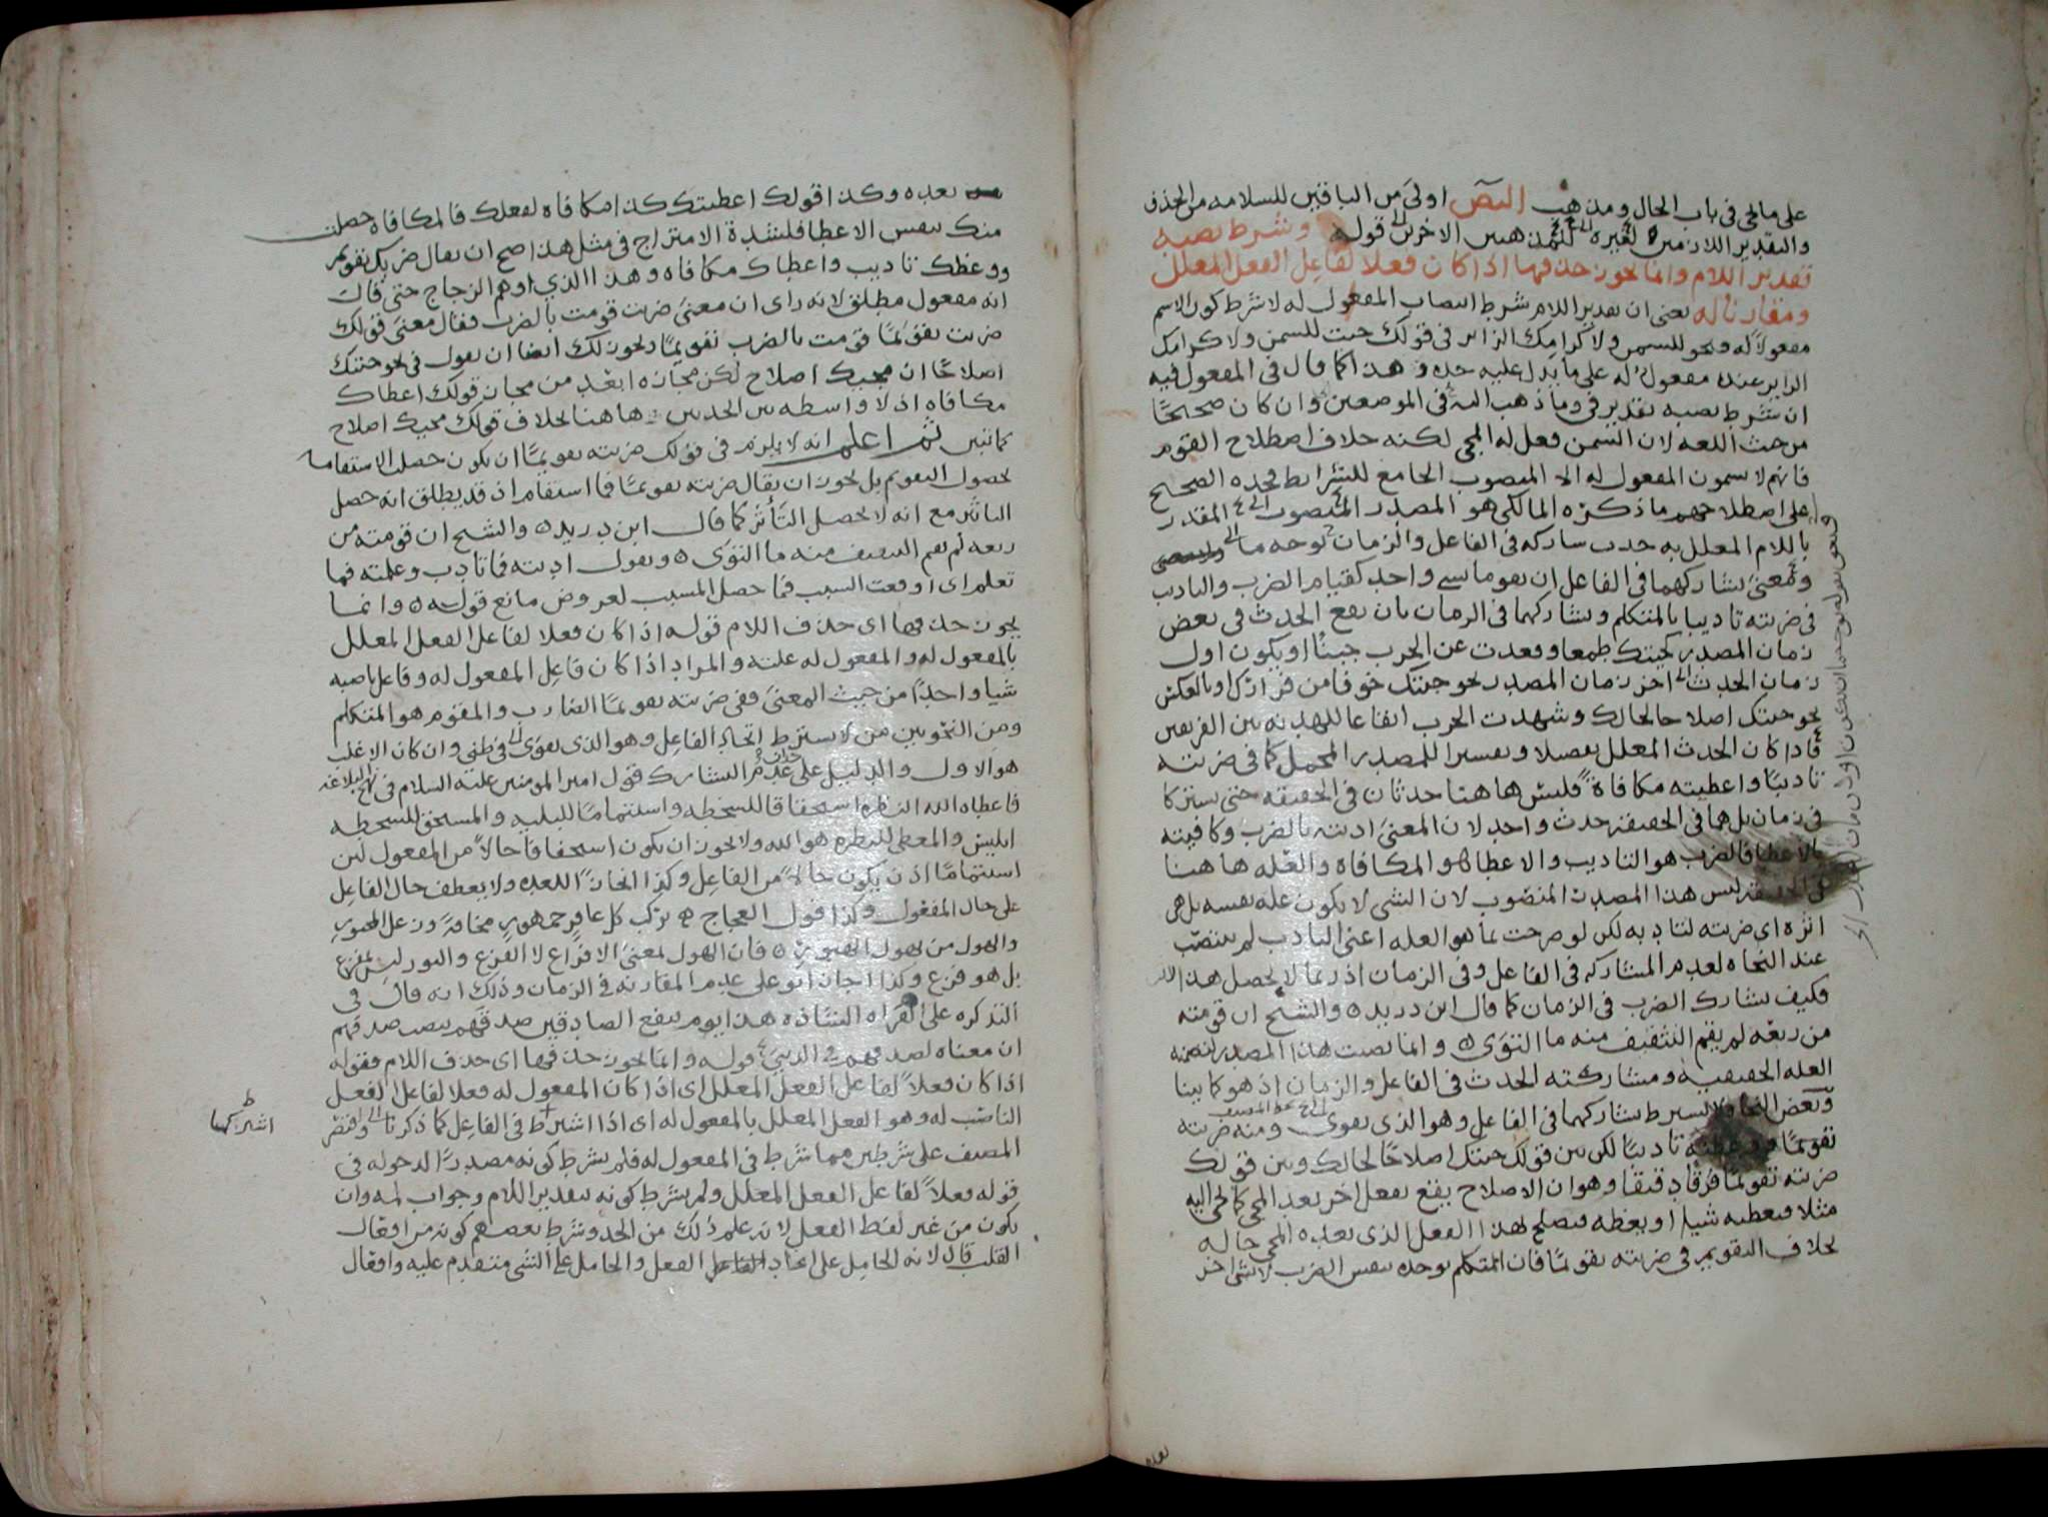 على ما يجئ فى باب الحال ومذهب البص اولى من الباقين للسلامه من الحذف
والتقدير اللازمين لغيره من المذهبين الاخرين قوله وشرط نصبه
تقدير اللام وانما يجوز حذفها اذا كان فعلا لفاعل الفعل المعلل
ومقارنا له يعنى ان تقدير اللام شرط انتصاب المفعول له لا شرط كون الاسم
مفعولا له فنحو للسمن ولاكرامك الزائر فى قولك جئت للسمن ولاكرامك
الزائر عنده مفعول له على ما يدل عليه حده وهذا كما قال فى المفعول فيه
ان شرط نصبه تقدير فى وما ذهب اليه فى الموضعين وان كان صحيحًا
من حيث اللغه لان السمن فعل له المجئ لكنه خلاف اصطلاح القوم
فانهم لا يسمون المفعول له الا المنصوب الجامع للشرايط فحده الصحيح
على اصطلاحهم ما ذكره المالكى هو المصدر المنصوب المقدر
باللام المعلل به حدث شاركه فى الفاعل والزمان
ومعنى تشاركهما فى الفاعل ان يقوما بشئ واحد كقيام الضرب والتاديب
فى ضربته تاديبا بالمتكلم وتشاركهما فى الزمان بان يقع الحدث فى بعض
زمان المصدر كجئتك طمعا وقعدت عن الحرب جبنًا او يكون اول
زمان الحدث اخر زمان المصدر نحو جئتك خوفا من فرارك او بالعكس
نحو جئتك اصلاحا لحالك وشهدت الحرب ايقاعا للهدنه بين الفريقين
فاذا كان الحدث المعلل تفصيلا وتفسيرا للمصدر المجمل كما فى ضربته
تاديبًا واعطيته مكافاة فليس هاهنا حدثان فى الحقيقه حتى يشتركا
فى زمان بل هما فى الحقيقة حدث واحد لان المعنى ادبته بالضرب وكافيته
بالاعطا فالضرب هو التاديب والاعطا هو المكافاه والعله هاهنا
فى الحقيقه ليس هذا المصدر المنصوب لان الشئ لا يكون عله نفسه بل هى
اثره اى ضربته لتادبه لكن لو صرحت بما هو العله اعنى التادب لم ينتصب
عند النحاه لعدم المشاركه فى الفاعل وفى الزمان اذ ربما لا يحصل هذا الاثر
فكيف يشارك الضرب فى الزمان كما قال ابن دريد والشيخ ان قومته
من زيغه لم يقم التثقيف منه ما التوى وانما نصبت هذا المصدر لتضمنه
العله الحقيقيه ومشاركته الحدث فى الفاعل والزمان اذ هو كما بينا
وبعض النحاه لا يشترط تشاركهما فى الفاعل وهو الذى يقوى ومنه ضربته
تقويمًا تاديبًا لكن بين قولك جئتك اصلاحًا لحالك وبين قولك
ضربته تقويمًا فرقا دقيقًا وهو ان الاصلاح يقع بفعل اخر بعد المجئ كما يجئ اليه
مثلا فيعطيه شيا او يعظه فيصلح بهذا الفعل الذى بعده المجئ حاله
بخلاف التقويم فى ضربته تقويمًا فان المتكلم يوجده بنفس الضرب لا بشئ اخر
بعده
بعده وكذا قولك اعطيتك كذا مكافاه لفعلك فالمكافاة حصلت
منك بنفس الاعطا فلشدة الامتزاج فى مثل هذا صح ان يقال ضربك تقويم
ووعظك تاديب واعطاك مكافاه وهذا الذى اوهم الزجاج حتى قال
انه مفعول مطلق لانه راى ان معنى ضربت قومت بالضرب فقال معنى قولك
ضربت تقويمًا قومت بالضرب تقويمًا ويجوز لك ايضا ان تقول فى نحو جئتك
اصلاحًا ان مجيك اصلاح لكن مجازه ابعد من مجاز قولك اعطاك
مكافاه اذ لا واسطه بين الحدثين هاهنا بخلاف قولك مجيك اصلاح
كما تبين ثم اعلم انه لا يلزم فى قولك ضربته تقويمًا ان يكون حصلت الاستقامه
بحصول التقويم بل يجوز ان يقال ضربته تقويمًا فما استقام اذ قد يطلق انه حصل
التاثير مع انه لا يحصل التأثر كما قال ابن دريد والشيخ ان قومته من
زيغه لم يقم التثقيف منه ما التوى وتقول ادبته فما تادب وعلمته فما
تعلم اى اوقعت السبب فما حصل المسبب لعروض مانع قوله وانما
يجوز حذفها اى حذف اللام قوله اذا كان فعلا لفاعل الفعل المعلل
بالمفعول له والمفعول له علته والمراد اذا كان فاعل المفعول له وفاعل ناصبه
شيا واحدًا من حيث المعنى ففى ضربته تقويمًا الضارب والمقوم هو المتكلم
ومن النحويين من لا يشترط اتحاد الفاعل وهو الذى يقوى فى ظنى وان كان الاغلب
هو الاول والدليل على جواز عدم التشارك قول امير المومنين عليه السلام فى نهج البلاغه
فاعطاه الله النظره استحقاقا للسخطه واستتمامًا للبليه والمستحق للسخطه
ابليس والمعطى للنظره هو الله ولا يجوز ان يكون استحقاقا حالاً من المفعول لان
استتمامًا اذن يكون حالاً من الفاعل وكذا انجازًا للعده ولا يعطف حال الفاعل
على حال المفعول وكذا قول العجاج يركب كل عاقر جمهور مخافة وزعل المحبور
والهول من تهول الهبور فان الهول بمعنى الافزاع لا الفزع والثور ليس بمفزع
بل هو فزع وكذا اجاز ابو على عدم المقارنه فى الزمان وذلك انه قال فى
التذكره على القراه الشاذه هذا يوم ينفع الصادقين صدقهم بنصب صدقهم
ان معناه لصدقهم فى الدنيا قوله وانما يجوز حذفها اى حذف اللام وقوله
اذا كان فعلاً لفاعل الفعل المعلل اى اذا كان المفعول له فعلا لفاعل الفعل
الناصب له وهو الفعل المعلل بالمفعول له اى اذا اشترط فى الفاعل كما ذكرنا واقتصر
اشتركا
المصنف على شرطين مما شرط فى المفعول له فلم يشرط كونه مصدرًا لدخوله فى
قوله فعلاً لفاعل الفعل المعلل ولم يشرط كونه بتقدير اللام وجواب لمه وان
يكون من غير لفظ الفعل لانه علم ذلك من الحد وشرط بعضهم كونه من افعال
القلب قال لانه الحامل على ايجاد الفعل والحامل على الشئ متقدم عليه وافعال